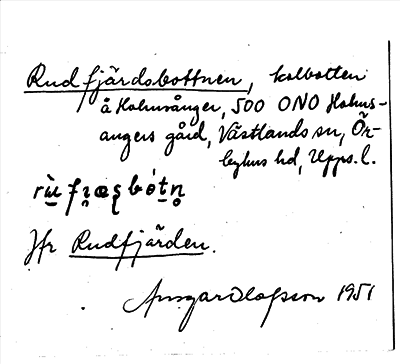 Rudfjärdsbottnen, kolbotten
å Holmsånger, 500 ONO Holms-
angers gård, Västlands sn, Ör-
byhus hd, Upps. l.
Jfr Rudfjärden.
Ansgar Olofsson 1951